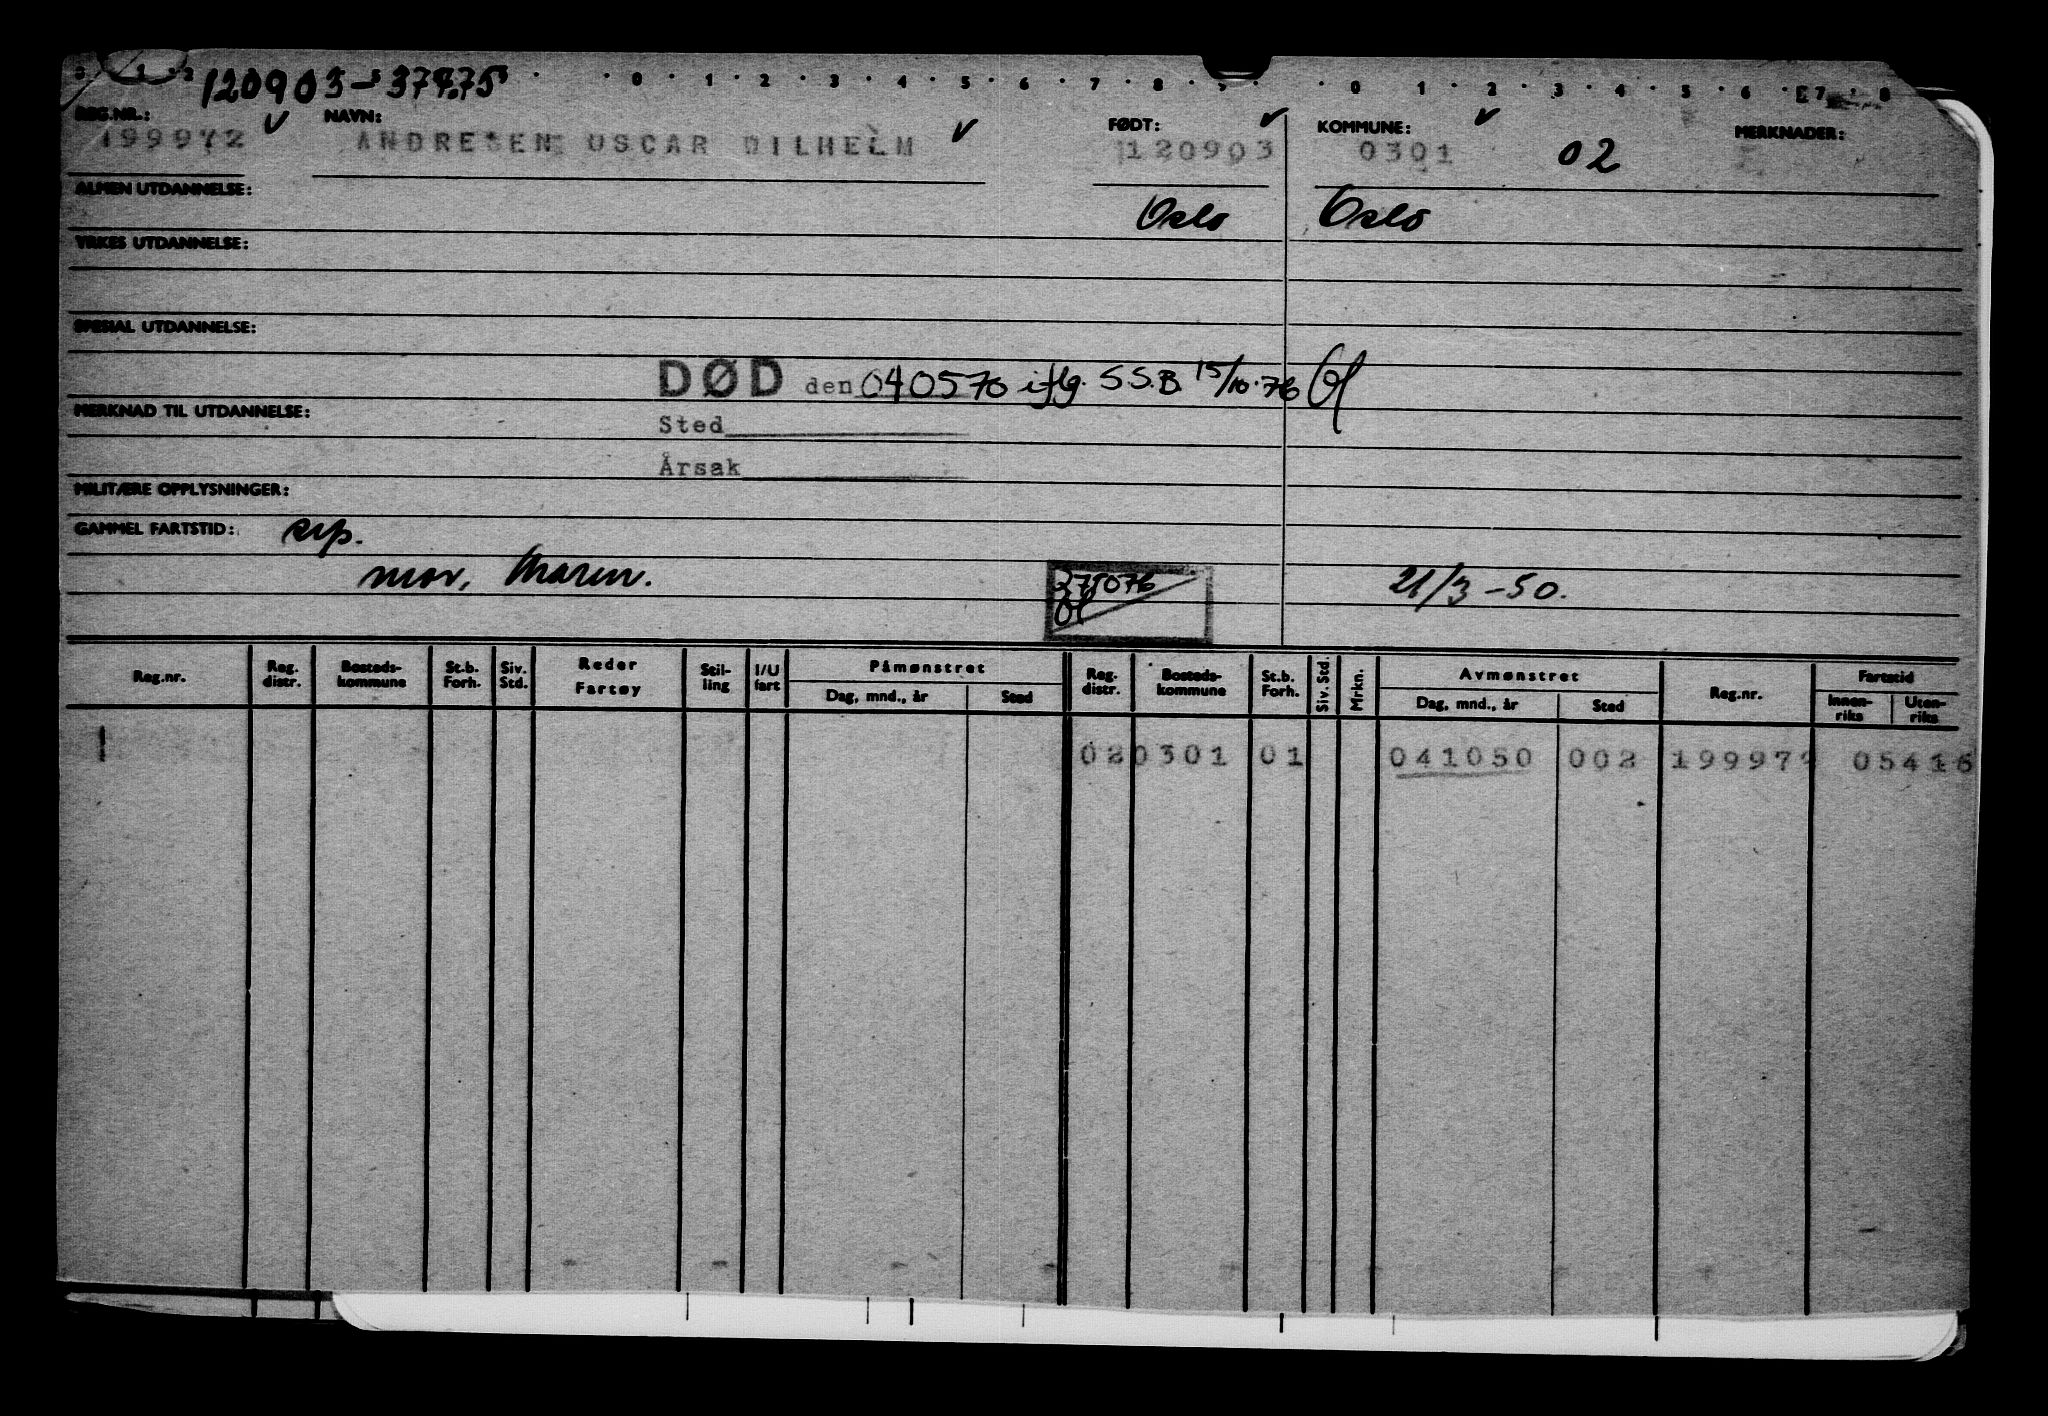 120903-37475
0 1 2 3 4 5 6 7 8 9 0 1 2 3 4 5 6 7 8
REG.NR.: NAVN: FØDT: KOMMUNE: MERKNADER:
199972 ANDRESEN OSCAR WILHELM 120903 0301 02
ALMEN UTDANNELSE: Oslo Oslo
YRKES UTDANNELSE:
SPESIAL UTDANNELSE:
DØD den 040570 iflg. S.S.B 15/10.76
MERKNAD TIL UTDANNELSE:
Sted
Årsak
MILITÆRE OPPLYSNINGER:
GAMMEL FARTSTID:
mor, Maren. 21/3-50.
Reg.nr. Reg. distr. Bosteds-kommune St.b. Forh. Siv. Std. Reder Fartøy Stil-ling I/U fart Påmønstret Dag, mnd., år Sted Reg. distr. Bosteds-kommune St.b. Forh. Siv. Std. Mrkn. Avmønstret Dag, mnd., år Sted Reg.nr. Fartstid Innen-riks Uten-riks
020301 01 041050 002 19997 05416